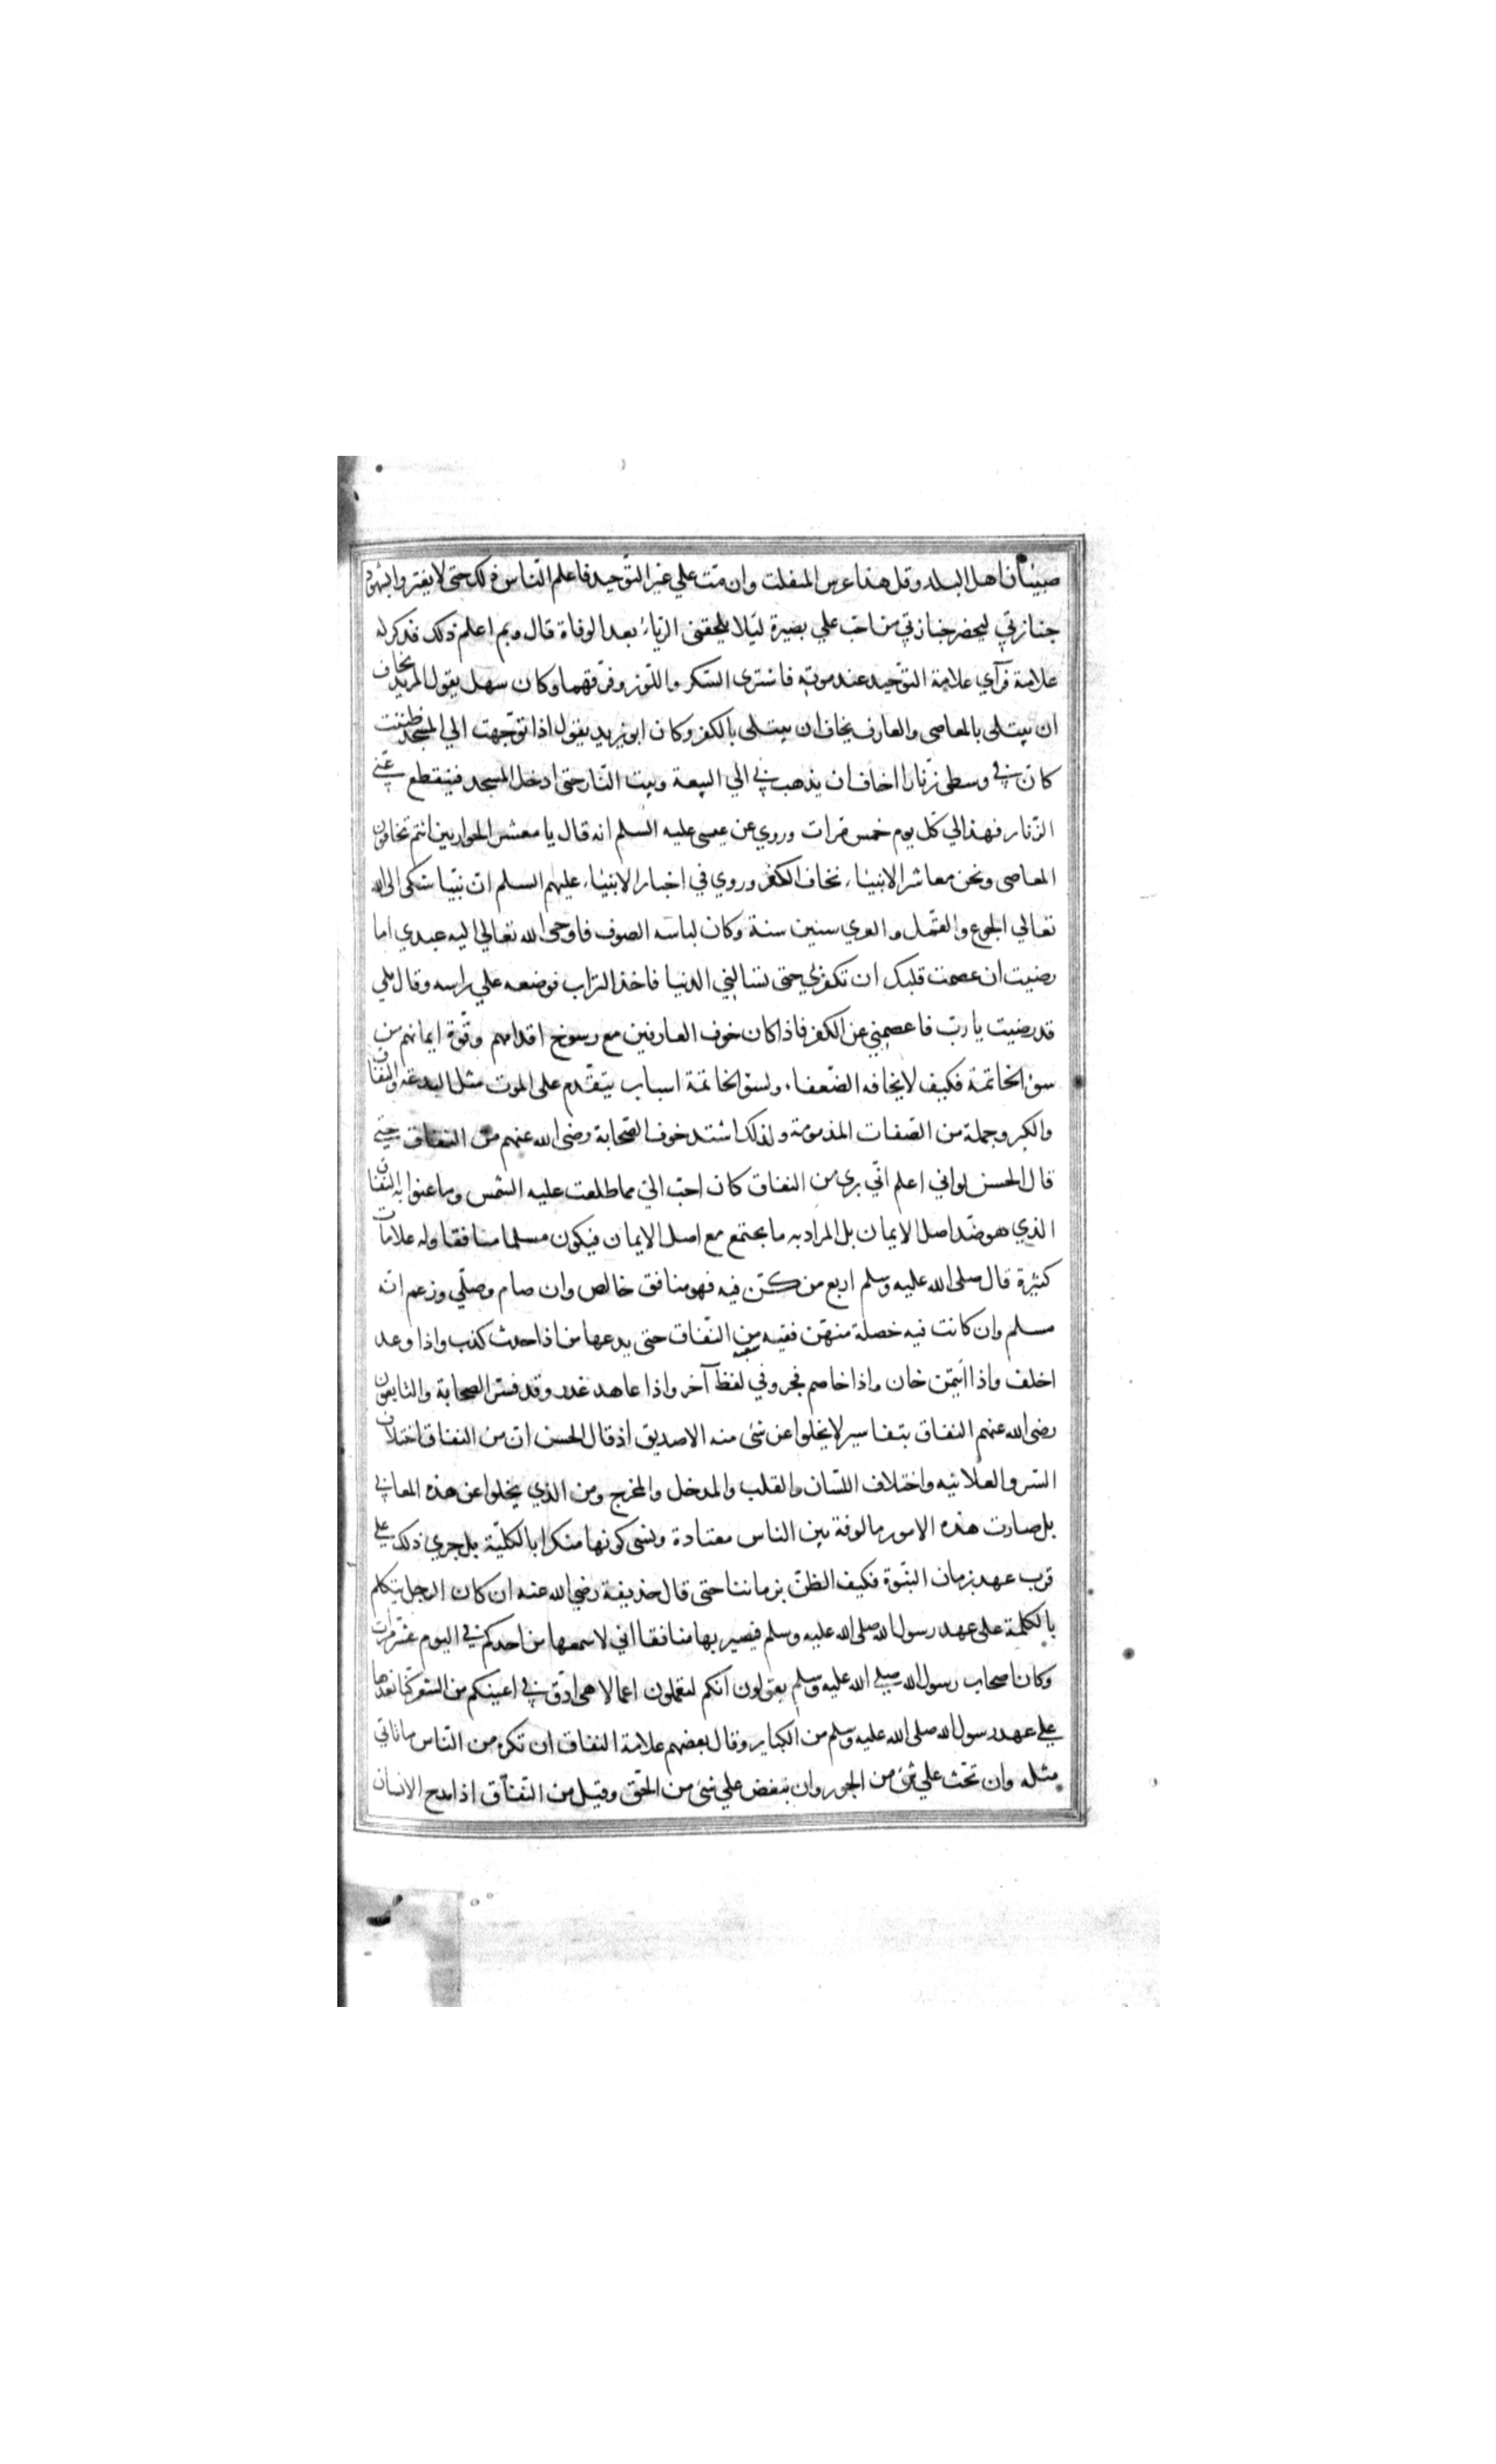 صبيان اهل البلد وقل هذا عرس المنفلت وان متّ علي غير التّوحيد فاعلم النّاس ذلك حتى لا يغتروا بشهود
جنازتي ليحضر جنازتي من احبّ علي بصيرة ليلا يلحقنى الرّياء بعد الوفاة قال وبم اعلم ذلك فذكر له
علامة فرآي علامة التوّحيد عند موته فاشترى السّكر واللّوز وفرّقهما وكان سهل يقول المريد يخاف
ان يبتلى بالمعاصى والعارف يخاف ان يبتلى بالكفر وكان ابو يزيد يقول اذا توّجهت الي المسجد ظننت
كانّ في وسطى زنّارا اخاف ان يذهب بي الي البيعة وبيت النّار حتى ادخل المسجد فيتقطع عنّي
الزّنار فهذا لي كلّ يوم خمس مرات وروي عن عيسى عليه السلم انه قال يا معشر الحواريين انتم تخافون
المعاصى ونحن معاشر الانبياء نخاف الكفر وروي في اخبار الانبياء عليهم السلم انّ نبيّا شكى الى الله
تعالي الجوع والقمّل والعري سنين سنة وكان لباسه الصوف فاوحى الله تعالي اليه عبدي اما
رضيت ان عصمت قلبك ان تكفر بي حتى تسالني الدنيا فاخذ التراب فوضعه علي راسه وقال بلي
قد رضيت يا ربّ فاعصمني عن الكفر فاذا كان خوف العارفين مع رسوخ اقدامهم وقوّة ايمانهم من
سوء الخاتمة فكيف لا يخافه الضّعفاء ولسوء الخاتمة اسباب يتقدّم على الموت مثل البدعة والنفاق
والكبر وجملة من الصّفات المذمومة ولذلك اشتد خوف الصّحابة رضى الله عنهم من النفاق حتي
قال الحسن لو اني اعلم انّي برى من النفاق كان احبّ اليّ مما طلعت عليه الشّمس وما عنوا به النفاق
الذي هو ضدّ اصل الايمان بل المراد به ما يجتمع مع اصل الايمان فيكون مسلما منافقا وله علامات
كثيرة قال صلى الله عليه وسلم اربع من كنّ فيه فهو منافق خالص وان صام وصلّي وزعم انّه
مسلم وان كانت فيه خصلة منهّن ففيه من النّفاق حتى يدعها من اذا حدث كذب واذا وعد
اخلف واذا ائتمن خان واذا خاصم فجر وفي لفظ آخر واذا عاهد غدر وقد فسّر الصحابة والتابعون
رضى الله عنهم النفاق بتفاسير لا يخلوا عن شى منه الا صديق اذ قال الحسن انّ من النفاق اختلاف
السّر والعلانيه واختلاف اللسّان والقلب والمدخل والمخرج ومن الذي يخلوا عن هذه المعاني
بل صارت هذه الامور مالوفة بين الناس معتادة ونسى كونها منكرا بالكليّة بل جري ذلك علي
قرب عهد بزمان النبّوة فكيف الظنّ بزماننا حتى قال حذيفة رضي الله عنه ان كان الرجل يتكلم
بالكلمة على عهد رسول الله صلى الله عليه وسلم فيصير بها منافقا اني لاسمعها من احدكم في اليوم عشر مرات
وكان اصحاب رسول الله صلى الله عليه وسلم يقولون انّكم لتعملون اعمالا هى ادّق في اعينكم من الشعر كنّا نعدها
علي عهد رسول الله صلى الله عليه وسلم من الكباير وقال بعضهم علامة النفاق ان تكره من النّاس ما تاتي
مثله وان تحّب علي شئ من الجور وان تبغض علي شئ من الحّق وقيل من النّفاق اذا مدح الانسان